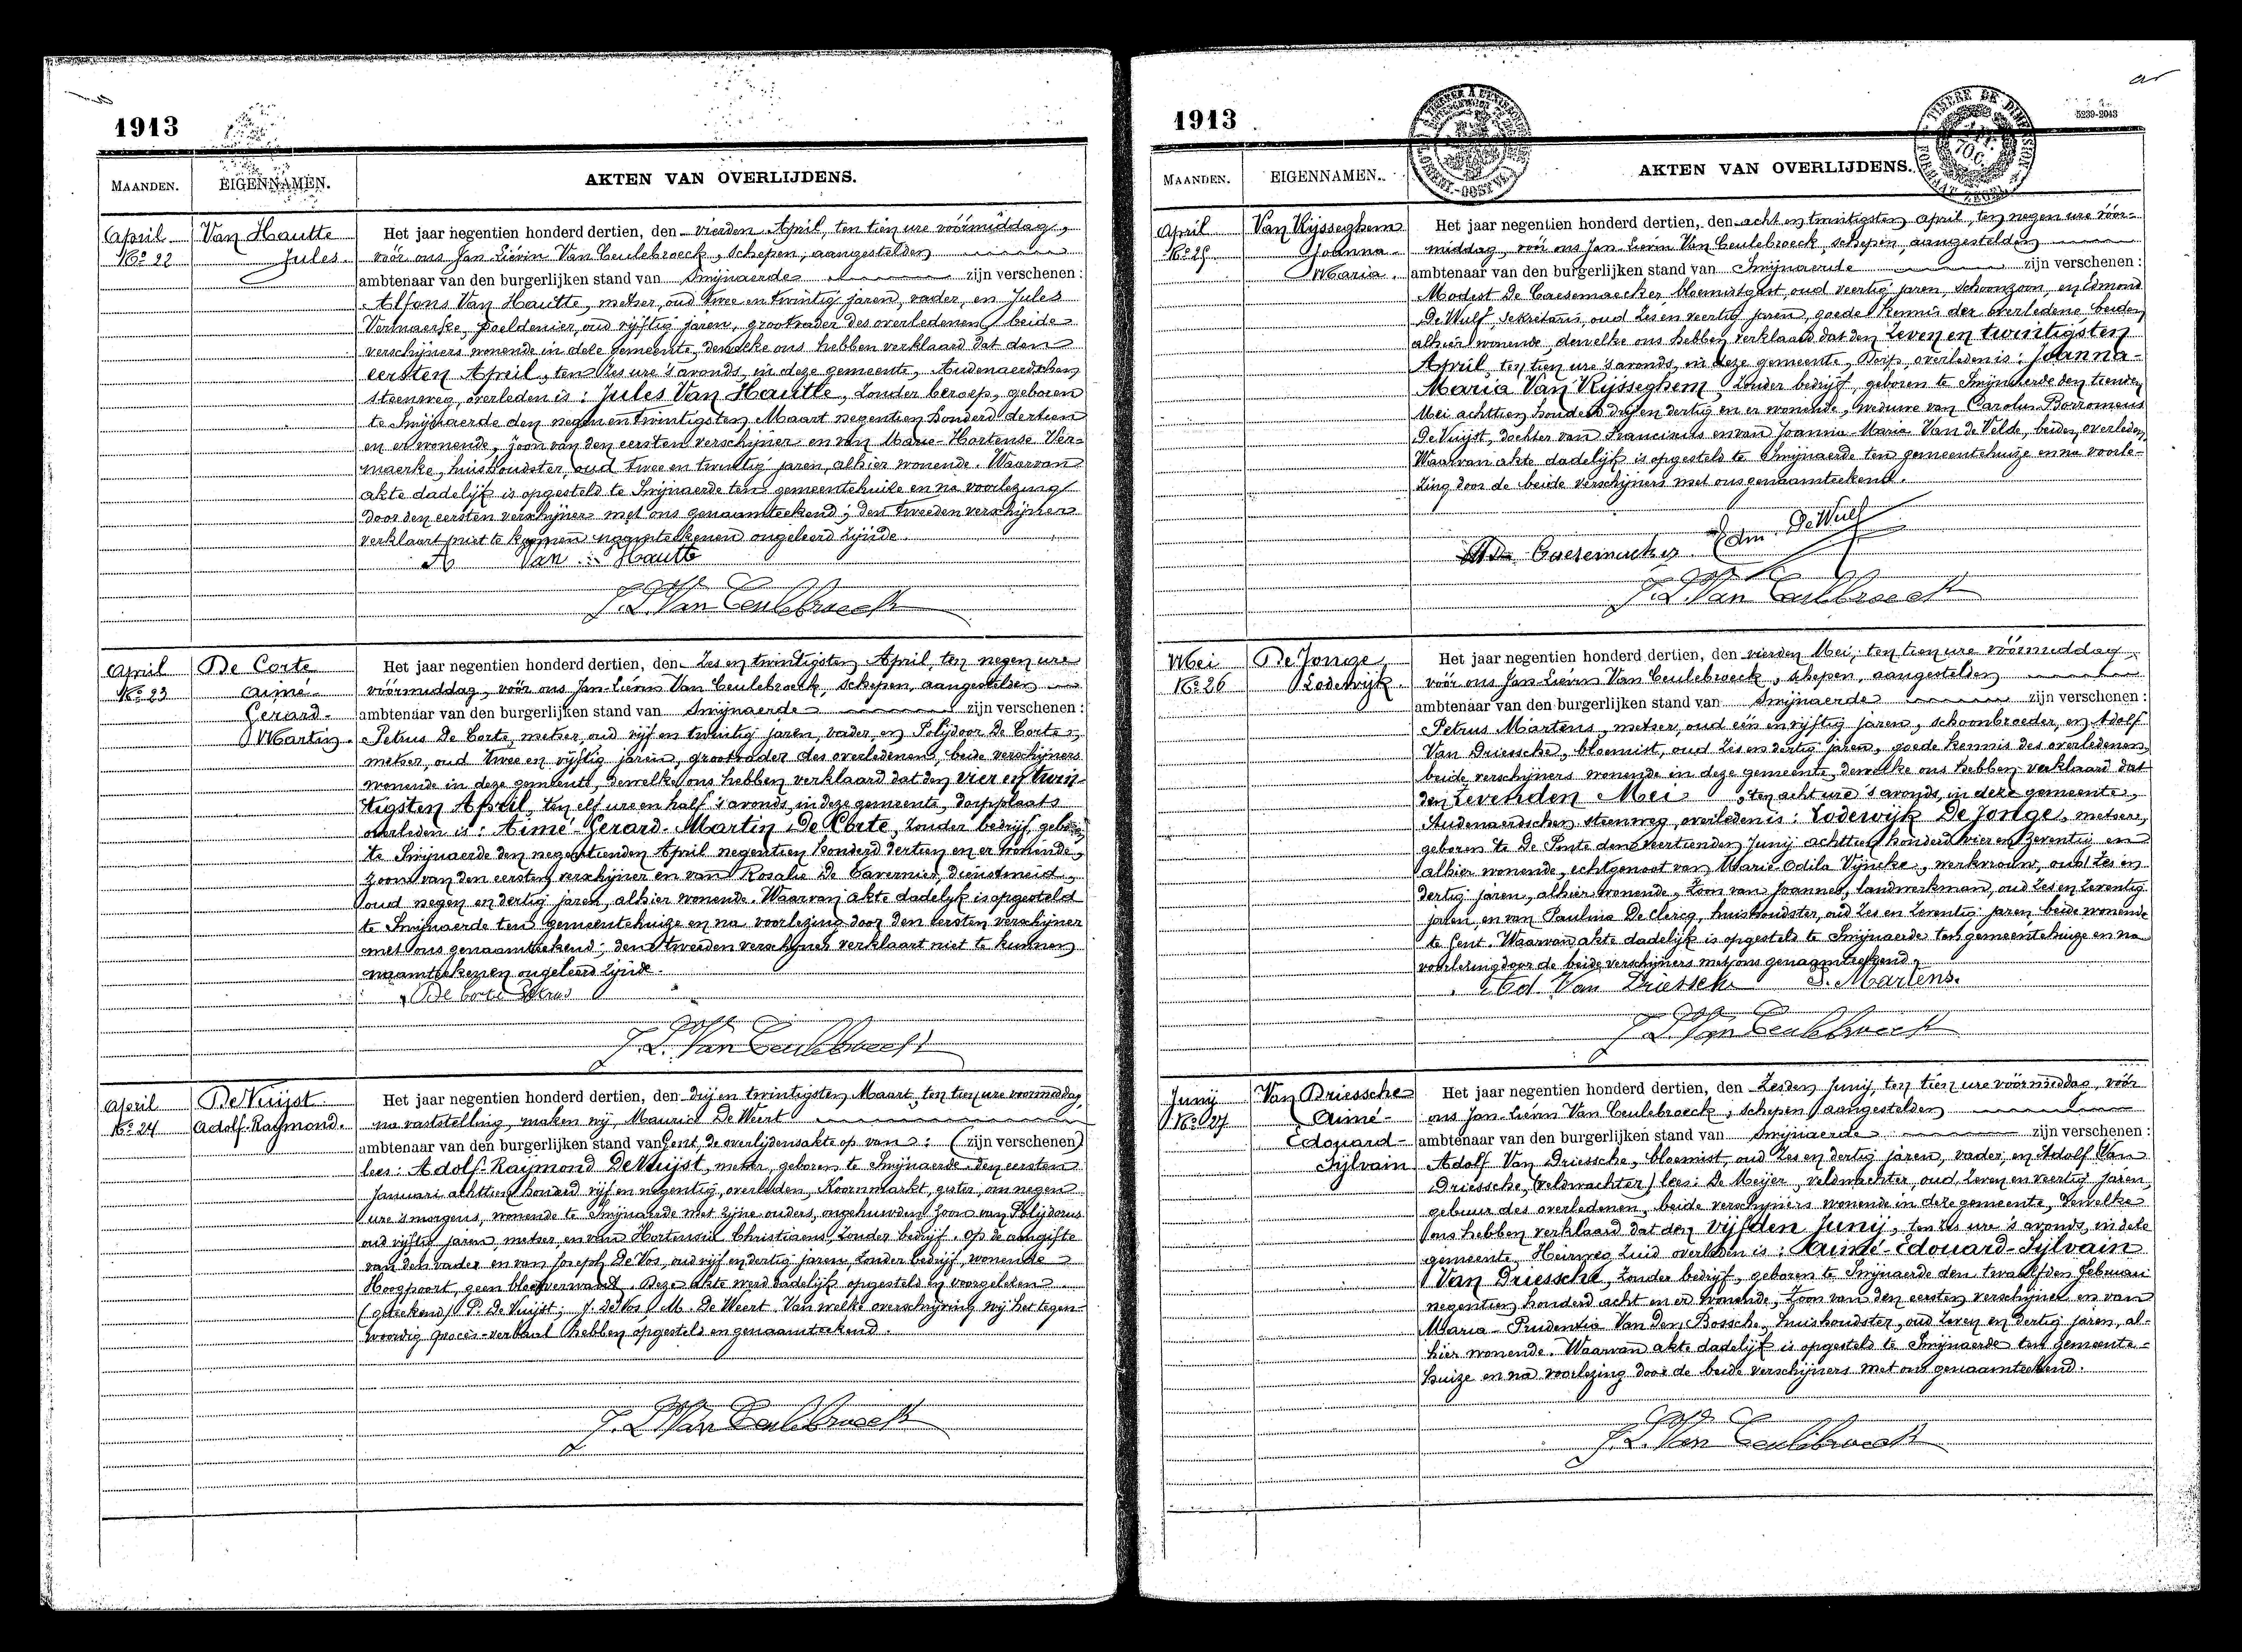 1913
MAANDEN. EIGENNAMEN. AKTEN VAN OVERLIJDENS.
April
No 22
Van Hautte
Jules.
Het jaar negentien honderd dertien, den vierden April, ten tien ure vóórmiddag,
vóór ons Jan Liévin Van Ceulebroeck, schepen, aangestelden
ambtenaar van den burgerlijken stand van Swijnaerde zijn verschenen:
Alfons Van Hautte, metser, oud twee en twintig jaren, vader, en Jules
Vermaerke, poeldenier, oud vijftig jaren, grootvader des overledenen, beide
verschijners wonende in deze gemeente, dewelke ons hebben verklaard dat den
eersten April, ten zes ure 's avonds, in deze gemeente, Audenaerdschen
steenweg, overleden is: Jules Van Hautte, zonder beroep, geboren
te Swijnaerde den negen en twintigsten Maart negentien honderd dertien
en er wonende, zoon van den eersten verschijner en van Marie-Hortense Ver-
maerke, huishoudster, oud twee en twintig jaren, alhier wonende. Waarvan
akte dadelijk is opgesteld te Swijnaerde ten gemeentehuize en na voorlezing
door den eersten verschijner met ons genaamteekend; den tweeden verschijner
verklaart niet te kunnen naamteekenen ongeleerd zijnde.
A Van Hautte
J. L. Van Ceulebroeck
April
No 23
De Corte
Aimé-
Gerard-
Martin.
Het jaar negentien honderd dertien, den zes en twintigsten April, ten negen ure
vóórmiddag, vóór ons Jan-Liévin Van Ceulebroeck, schepen, aangestelden
ambtenaar van den burgerlijken stand van Swijnaerde zijn verschenen:
Petrus De Corte, metser, oud vijf en twintig jaren, vader, en Polijdoor De Corte,
metser, oud twee en vijftig jaren, grootvader des overledenen, beide verschijners
wonende in deze gemeente, dewelke ons hebben verklaard dat den vier en twin-
tigsten April, ten elf ure en half 's avonds, in deze gemeente, dorpplaats
overleden is: Aimé-Gerard-Martin De Corte, zonder bedrijf, geboren
te Swijnaerde den negentienden April negentien honderd dertien en er wonende,
zoon van den eersten verschijner en van Rosalie De Tavernier, dienstmeid,
oud negen en dertig jaren, alhier wonende. Waarvan akte dadelijk is opgesteld
te Swijnaerde ten gemeentehuize en na voorlezing door den eersten verschijner
met ons genaamteekend; den tweeden verschijner verklaart niet te kunnen
naamteekenen ongeleerd zijnde.
De Corte Petrus
J. L. Van Ceulebroeck
April
No 24
De Vuijst
Adolf-Raymond.
Het jaar negentien honderd dertien, den drij en twintigsten Maart, ten tien ure voormiddag,
na vaststelling, maken wij Maurice De Weert
ambtenaar van den burgerlijken stand van Gent, de overlijdensakte op van: (zijn verschenen)
lees: Adolf-Raijmond De Vuijst, metser, geboren te Swijnaerde den eersten
Januari achttien honderd vijf en negentig, overleden, Koornmarkt, gister, om negen
ure 's morgens, wonende te Swijnaerde met zijne ouders, ongehuwden zoon van Polijdorus
oud vijftig jaren, metser, en van Hortensie Christiaens zonder bedrijf. Op de aangifte
van den vader en van Joseph De Vos, oud vijf en dertig jaren, zonder bedrijf, wonende
Hoogpoort, geen bloedverwant. Deze akte werd dadelijk opgesteld en voorgelezen
(geteekend) P. De Vuijst; J. De Vos, M. De Weert. Van welke overschrijving wij het tegen-
woordig proces-verbaal hebben opgesteld en genaamteekend.
J. L. Van Ceulebroeck
1913
5239-2043
MAANDEN. EIGENNAMEN. AKTEN VAN OVERLIJDENS.
April
No 25
Van Rijsseghem
Joanna-
Maria.
Het jaar negentien honderd dertien, den acht en twintigsten April, ten negen ure vóór-
middag, vóór ons Jan-Lievin Van Ceulebroeck, schepen, aangestelden
ambtenaar van den burgerlijken stand van Swijnaerde zijn verschenen:
Modest De Caesemaecker, bloemistgast, oud veertig jaren, schoonzoon, en Edmond
De Wulf, sekretaris, oud zes en veertig jaren, goede kennis der overledene, beiden
alhier wonende, dewelke ons hebben verklaard dat den zeven en twintigsten
April, ten tien ure 's avonds, in deze gemeente, Dorp, overleden is: Joanna-
Maria Van Rijsseghem, zonder bedrijf, geboren te Swijnaerde den tienden
Mei achttien honderd drij en dertig en er wonende, weduwe van Carolus-Borromeus
De Vuijst, dochter van Franciscus en van Joanna-Maria Van de Velde, beiden overleden.
Waarvan akte dadelijk is opgesteld te Swijnaerde ten gemeentehuize en na voorle-
zing door de beide verschijners met ons genaamteekend.
Edm. De Wulf
J. L. Van Ceulebroeck
Mei
No 26
De Jonge,
Lodewijk.
Het jaar negentien honderd dertien, den vierden Mei, ten tien ure vóórmiddag
vóór ons Jan-Liévin Van Ceulebroeck, schepen, aangestelden
ambtenaar van den burgerlijken stand van Swijnaerde zijn verschenen:
Petrus Martens, metser, oud één en vijftig jaren, schoonbroeder, en Adolf
Van Driessche, bloemist, oud zes en dertig jaren, goede kennis des overledenen,
beide verschijners wonende in deze gemeente, dewelke ons hebben verklaard dat
den zevenden Mei, ten acht ure 's avonds, in deze gemeente,
Audenaerdschen steenweg, overleden is: Lodewijk De Jonge, metser,
geboren te De Pinte den veertienden Junij achttien honderd vier en zeventig en
alhier wonende, echtgenoot van Marie-Odila Vijncke, werkvrouw, oud zes en
dertig jaren, alhier wonende, zoon van Joannes, landwerkman, oud zes en zeventig
jaren, en van Paulina De Clercq, huishoudster, oud zes en zeventig jaren beide wonende
te Gent. Waarvan akte dadelijk is opgesteld te Swijnaerde ten gemeentehuize en na
voorlezing door de beide verschijners met ons genaamteekend.
Ad. Van Driessche P. Martens.
J. L. Van Ceulebroeck
Junij
No 27
Van Driessche
Aimé-
Edouard-
Sijlvain
Het jaar negentien honderd dertien, den zesden Junij, ten tien ure vóórmiddag, vóór
ons Jan-Liévin Van Ceulebroeck, schepen aangestelden
ambtenaar van den burgerlijken stand van Swijnaerde zijn verschenen:
Adolf Van Driessche, bloemist, oud zes en dertig jaren, vader, en Adolf Van
Driessche, (veldwachter) lees: De Meijer, veldwachter, oud zeven en veertig jaren,
gebuur des overledenen, beide verschijners wonende in deze gemeente, dewelke
ons hebben verklaard dat den vijfden Junij, ten zes ure 's avonds, in deze
gemeente, Heirweg Zuid overleden is: Aimé-Edouard-Sijlvain
Van Driessche, zonder bedrijf, geboren te Swijnaerde den twaalfden Februari
negentien honderd acht en er wonende, zoon van den eersten verschijner en van
Maria-Prudentia Van Den Bossche, huishoudster, oud zeven en dertig jaren, al-
hier wonende. Waarvan akte dadelijk is opgesteld te Swijnaerde ten gemeente-
huize en na voorlezing door de beide verschijners met ons genaamteekend.
J. L. Van Ceulebroeck